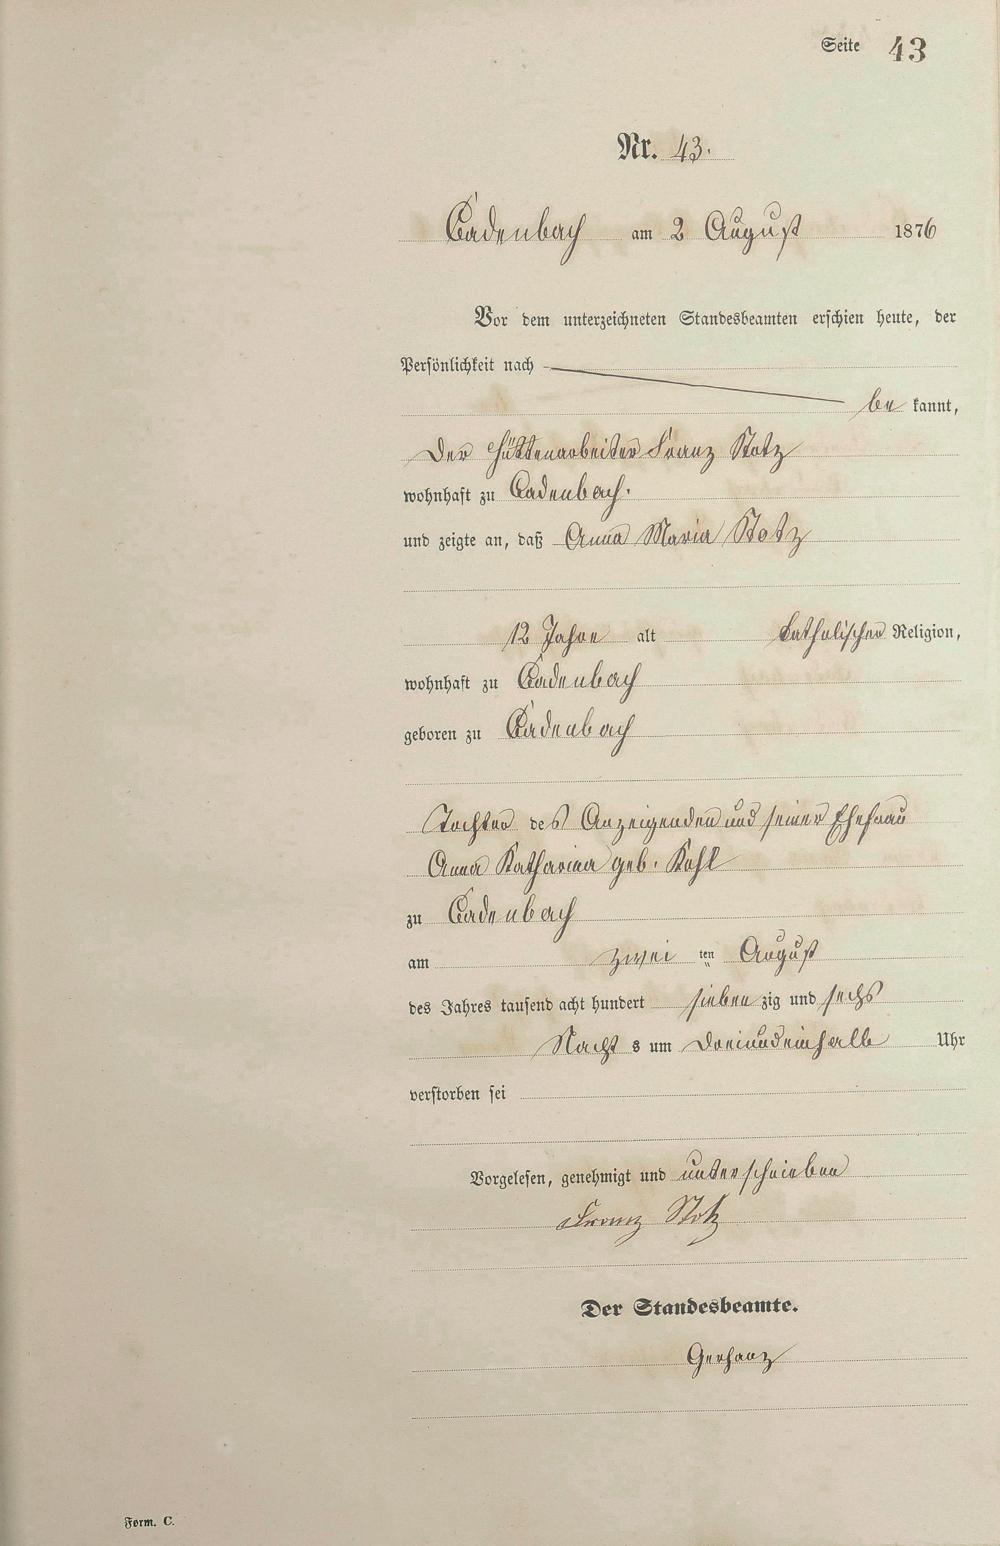 Seite 43
Nr. 43.
Cadenbach am 2 August 1876
Vor dem unterzeichneten Standesbeamten erschien heute, der
Persönlichkeit nach
be kannt,
Der Hüttenarbeiter Franz Stotz
wohnhaft zu Cadenbach.
und zeigte an, daß Anna Maria Stotz
12 Jahre alt katholischer Religion,
wohnhaft zu Cadenbach
geboren zu Cadenbach
Tochter des Anzeigenden und seiner Ehefrau
Anna Katharina geb. Kohl
zu Cadenbach
am zwei ten August
des Jahres tausend acht hundert sieben zig und sechs
Nacht s um dreiundeinhalb Uhr
verstorben sei
Vorgelesen, genehmigt und unterschrieben
Franz Stotz
Der Standesbeamte.
Gerhanz
Form. C.